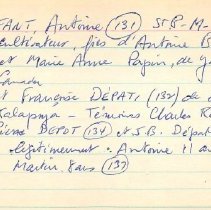 TART, Antoine (131) St B-M-
cultivateur, fils d'Antoine B
et Marie Anne Papin, de
Canada
et Françoise DÉPATI, (132) de
Kalapuya - Témoins Charles R
Pierre DEPOT (134) et J.B. Dépat
légitimement - Antoine 11 a
Martin, 8 ans (137)